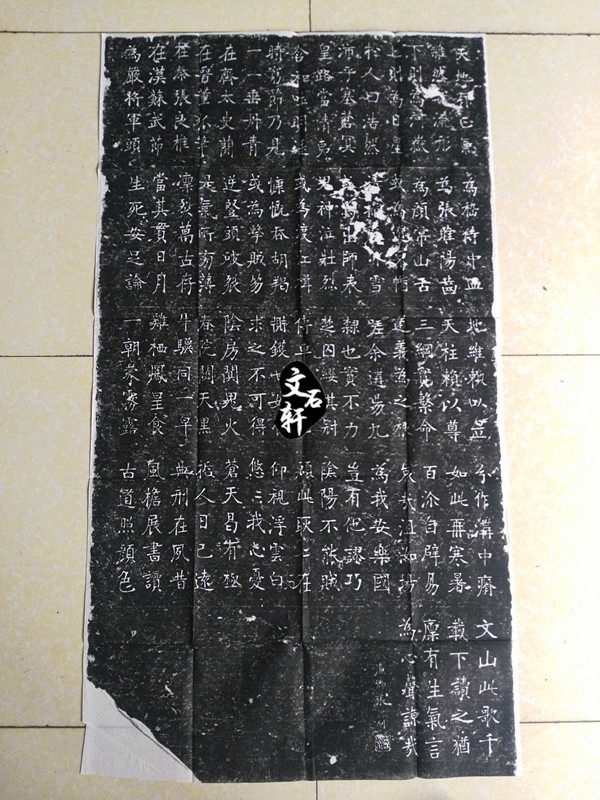 天地有正氣
雜然賦流形
下則為河嶽
上則為日星
於人曰浩然
沛乎塞蒼冥
皇路當清夷
含和吐明庭
時窮節乃見
一一垂丹青
在齊太史簡
在晉董狐筆
在秦張良椎
在漢蘇武節
為嚴將軍頭
為嵇侍中血
為張睢陽齒
為顏常山舌
或為遼東帽
清操厲冰雪
或為出師表
鬼神泣壯烈
或為渡江楫
慷慨吞胡羯
或為擊賊笏
逆豎頭破裂
是氣所旁薄
凜烈萬古存
當其貫日月
生死安足論
地維賴以立
天柱賴以尊
三綱實繫命
道義為之根
嗟余遘陽九
隸也實不力
楚囚纓其冠
傳車
鼎鑊甘如
求之不可得
陰房闃鬼火
春院閟天黑
牛驥同一皁
雞栖鳳皇食
一朝蒙霧露
分作溝中瘠
如此再寒暑
百沴自辟易
哀哉沮洳場
為我安樂國
豈有他謬巧
陰陽不能賊
顧此耿耿在
仰視浮雲白
悠悠我心憂
蒼天曷有極
哲人日已遠
典刑在夙昔
風檐展書讀
古道照顏色
文山此歌千
載下讀之猶
凜有生氣言
為心聲諒哉
文石軒